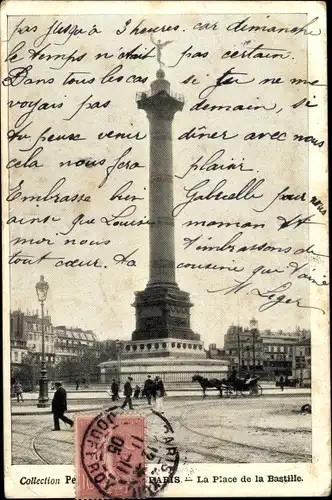 pas jusqu'à 3 heures. car dimanche
le temps n'était pas certain.
Dans tous les cas si tu ne me
voyais pas demain, si
tu peux venir dîner avec nous
cela nous fera plaisir.
Embrasse bien Gabrielle pour nous
ainsi que Louise maman et
moi nous t'embrassons de
tout cœur. ta cousine que t'aime
M. Leger
Collection Pe PARIS. - La Place de la Bastille.